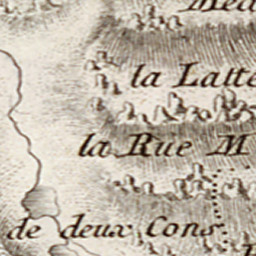 la Latte
la Rue M
de deux Cons